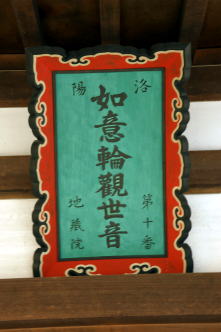 洛陽
如意輪觀世音
第十番
地蔵院